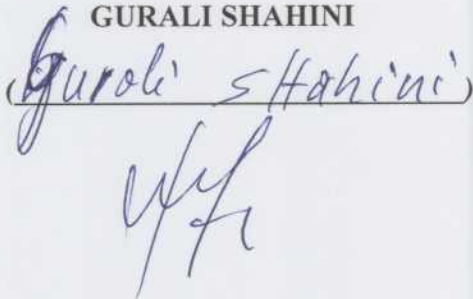 GURALI SHAHINI
(Gurali SHahini)